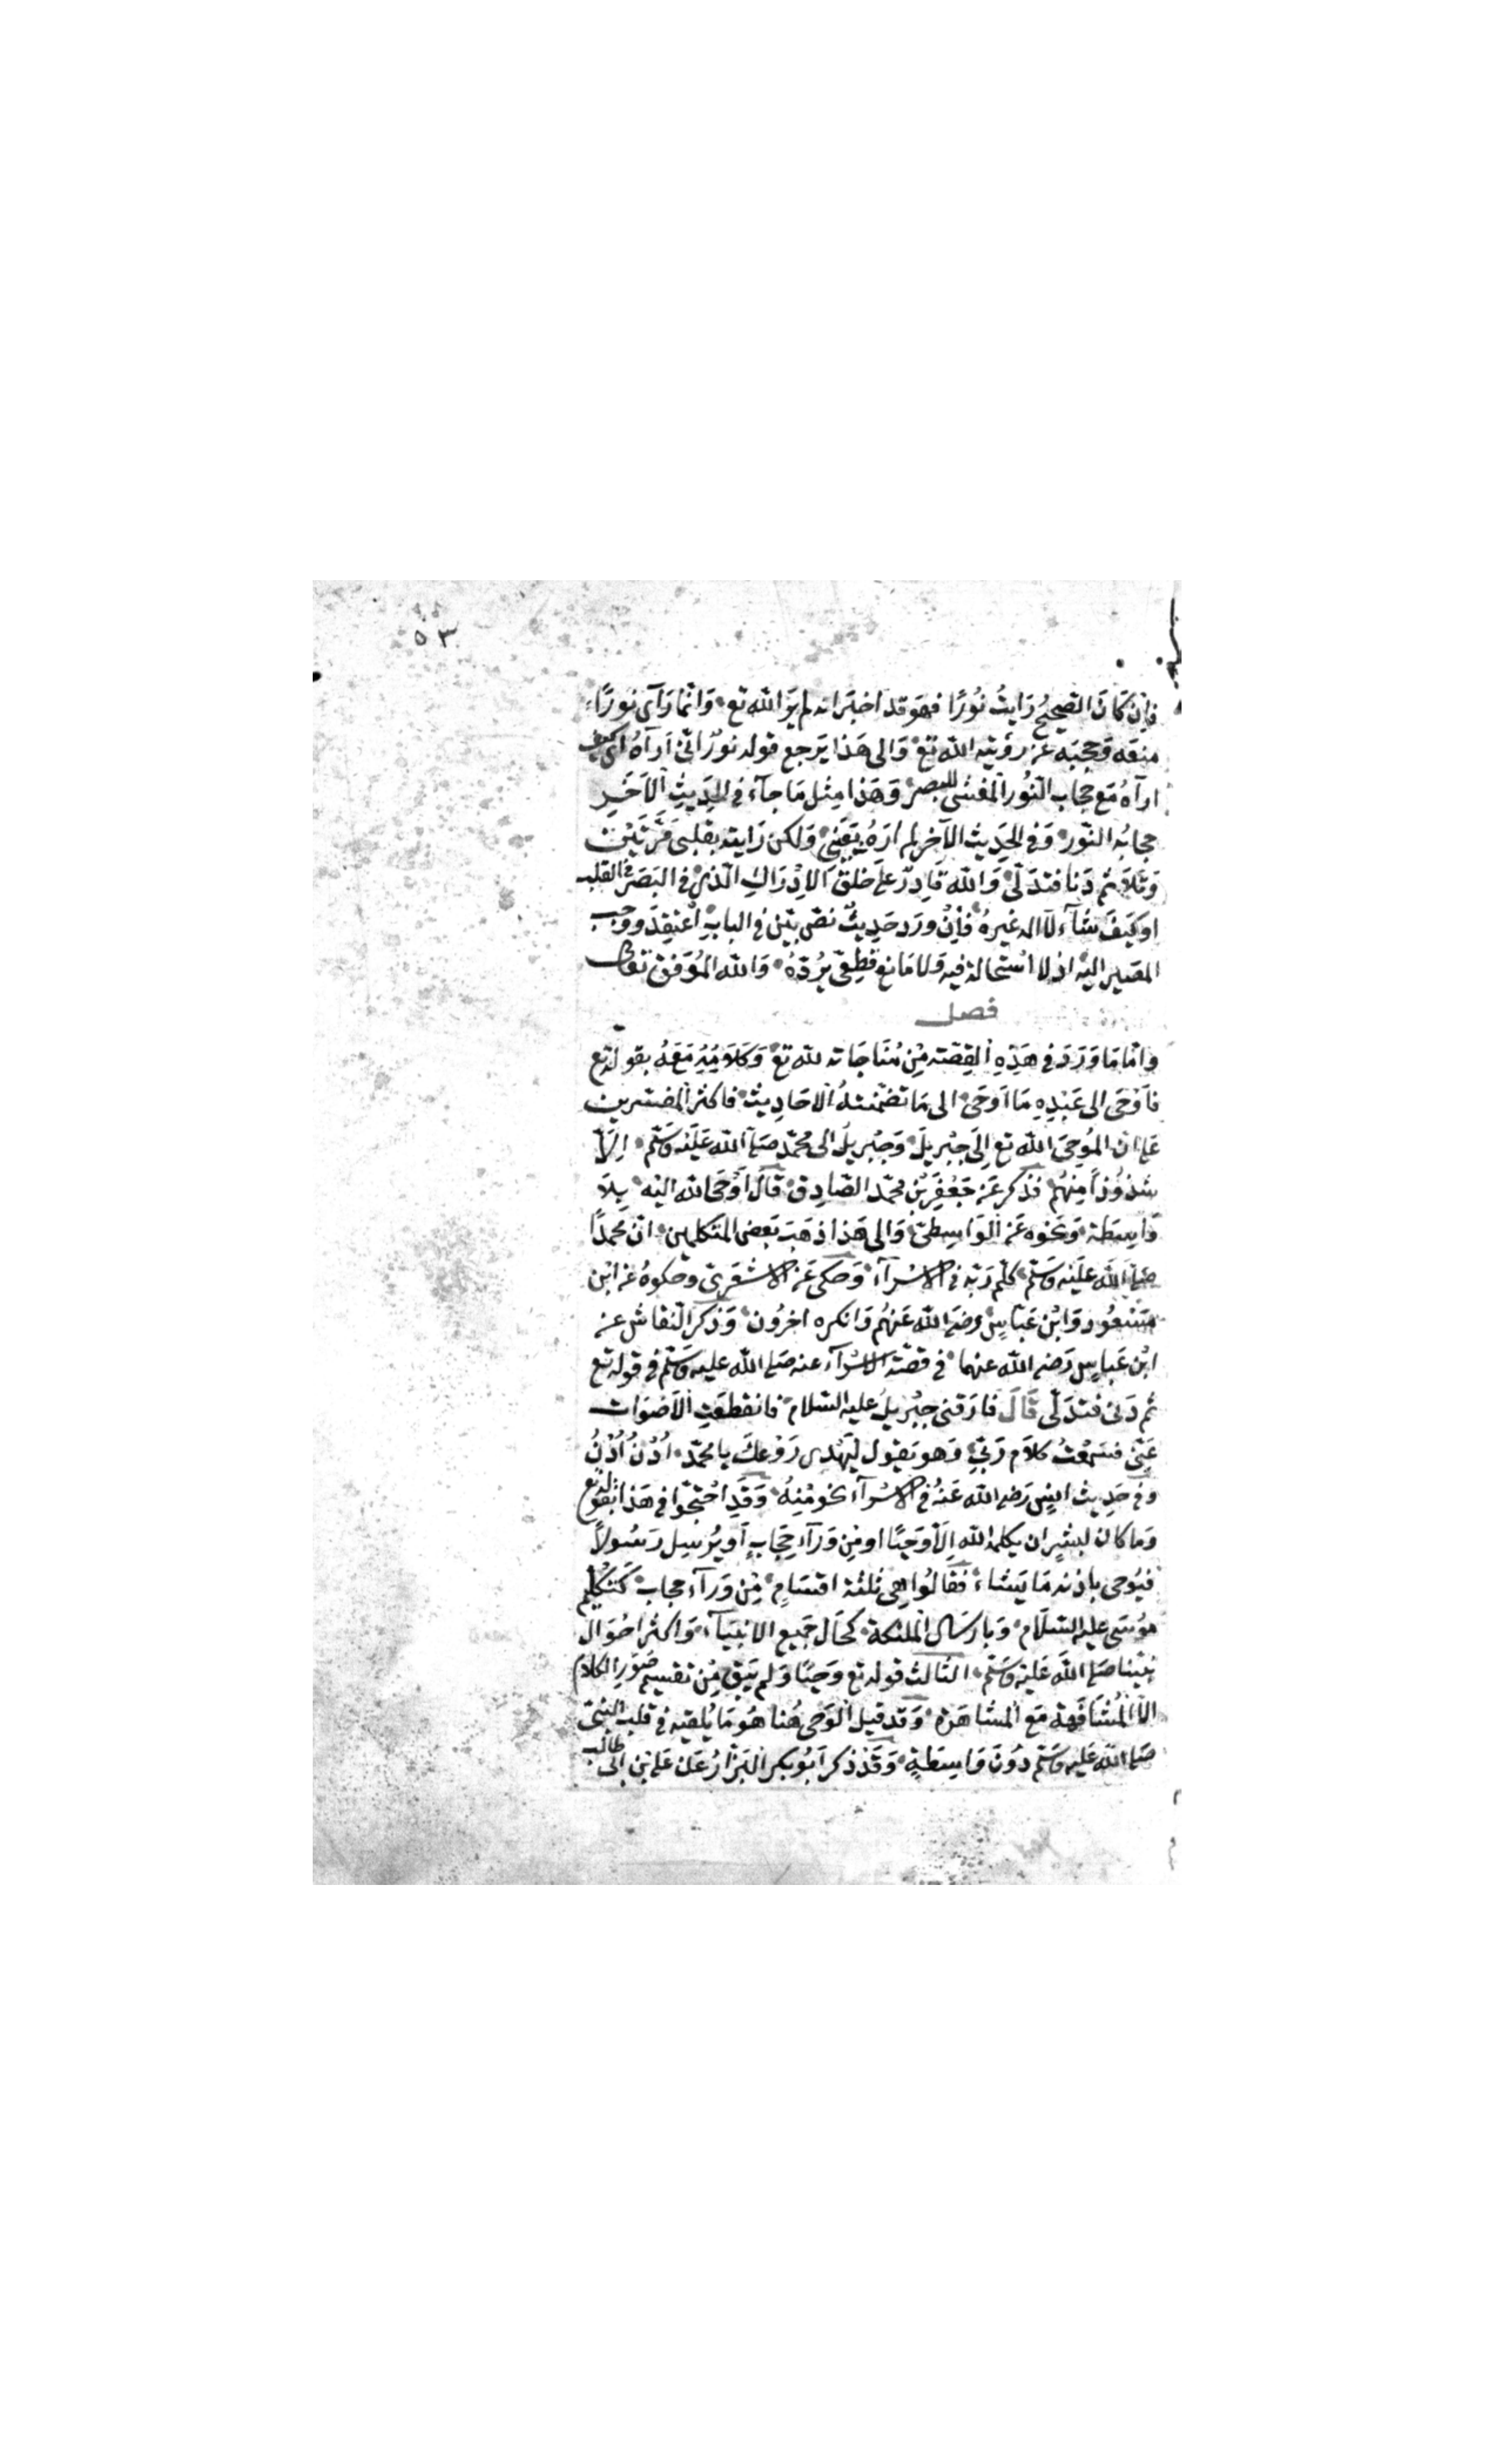 ٥٣
فَإن كَانَ الصَّحِيحُ رَايتُ نُورًا فهوَ قد اخبَرَ انه لم يَرَ الله تع وَانّمَا رَآى نُورًا
منعَه وَحجبَه عَن رؤيته الله تع وَالى هَذا يَرجع قوله نورٌ انّى اَرآهُ اى كيف
ارآهُ مَع حجاب النّورِ المغشى للبصر وَهَذا مِثل مَا جآء فى الحَدِيثِ الاَخَرِ
حجابُه النّور وَفى الحَدِيث الآخر لم اَرَهُ بعَينى وَلكن رَايته بقلبى مَرّتَيْن
وَتلاَ ثم دَنا فتدَلّى وَالله قَادِرٌ عَلى خلق الادْرَاكِ الّذى فى البَصَر فى القلب
او كيَفَ شَآء لا اله غيرهُ فَإنْ ورَد حَدِيثٌ نصٌّ بيّن فى البابِ اُعْتقِدَ ووَجب
المصَير اليْه اذ لا اسْتحالة فيه وَلا مَانع قَطِعىّ يَرُدّهُ وَالله المُوَفق تعالى
فصل
وامّا مَا وَرَدَ فى هَذِهِ القِصّته مِن مُنَاجَاته لله تع وَكَلاَمِهِ مَعَهُ بقوله تع
فاَوْحَى الى عَبْدِهِ مَا اَوحَى الى مَا تضمّنتهُ الاحَادِيث فاكثر المفسّرين
عَلى انّ المُوحِىَ الله تع اِلَى جِبْريلَ وَجْبريلُ الى محمّد صَلى الله عَلَيْه وَسَلّم اِلاَّ
شذوُذاً مِنهُم فذكر عَن جَعْفَرَ بْن محمّد الصّادِق قَالَ اَوْحَى الله اليْه بِلاَ
وَاسِطَة وَنحْوه عَن الوَاسِطىّ وَالى هَذا ذهَبَ بَعض المتكلمين انّ محمدًا
صَلى الله عَلَيْه وَسَلّم كلّم رَبّه فى الاسْرَآء وَحكى عَن الاشْعَرِىّ وحكوهُ عَن ابْن
مَسْعُود وَابْن عَبّاسٍ رضىَ الله عَنهُم وَانكره اخرُون وَذكَر النّقاش عن
ابْن عَباسٍ رَضى الله عنهما فى قصّته الاسْرَآء عنه صَلى الله عليه وَسَلّم فى قوله تع
ثم دَنى فتدَلّى قَالَ فارَقنى جبْريلُ عليه السّلام فانقطعَتِ الاَصْوَات
عَنّى فسَمعْتُ كلاَم رَبّى وَهو يَقول ليَهْدى رَوْعكَ يا محمّد اُدْنُ اُدْنُ
وفى حَدِيث انسٍ رَضى الله عَنْهُ فى الاسْرَآء نحو مْنِهُ وَقَدِ احْتجّوا فى هَذا بقوله تع
وَما كانَ لبَشرٍ ان يكلمهُ الله اِلاّ وَحيًا او مِن وَرَآء حِجَابٍ اَو يُرْسِل رَسُولاً
فيُوحى باذنه مَا يَشاء فقَالُوا هى ثلثة اقسَامٍ مِن وَرآء حجابٍ كتكليم
موُسَى عليه السّلام وَبارسَال الملئكة كحَال جَميع الانبيَآء وَاكثر احْوَال
نبيّنا صَلى الله عَليْه وَسَلّم الثالث قوله تع وَحيًا وَلم يَبْق مِن تقسيم صُوَر الكلاَم
الاّ المُشَافَهة مَع المشاهَدَة وَقد قيل الوَحى هُنا هُوَ مَا يُلقيه فى قلب النبّى
صَلى الله عَليه وَسَلّم دُوْنَ وَاسِطَةٍ وَقَدْ ذكر اَبوُ بكرٍ البَزّارُ عَن عَلى بْن ابى طالب